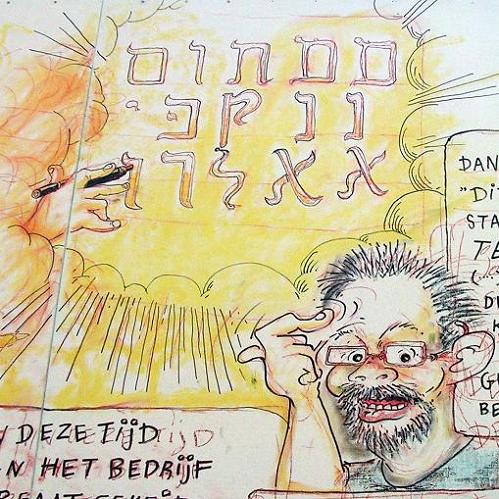 ממתוס
ננקפ
אאלרו
DAN
"DIT
STA
TE
(...
D
G
BE
DEZE TIJD
N HET BEDRIJF